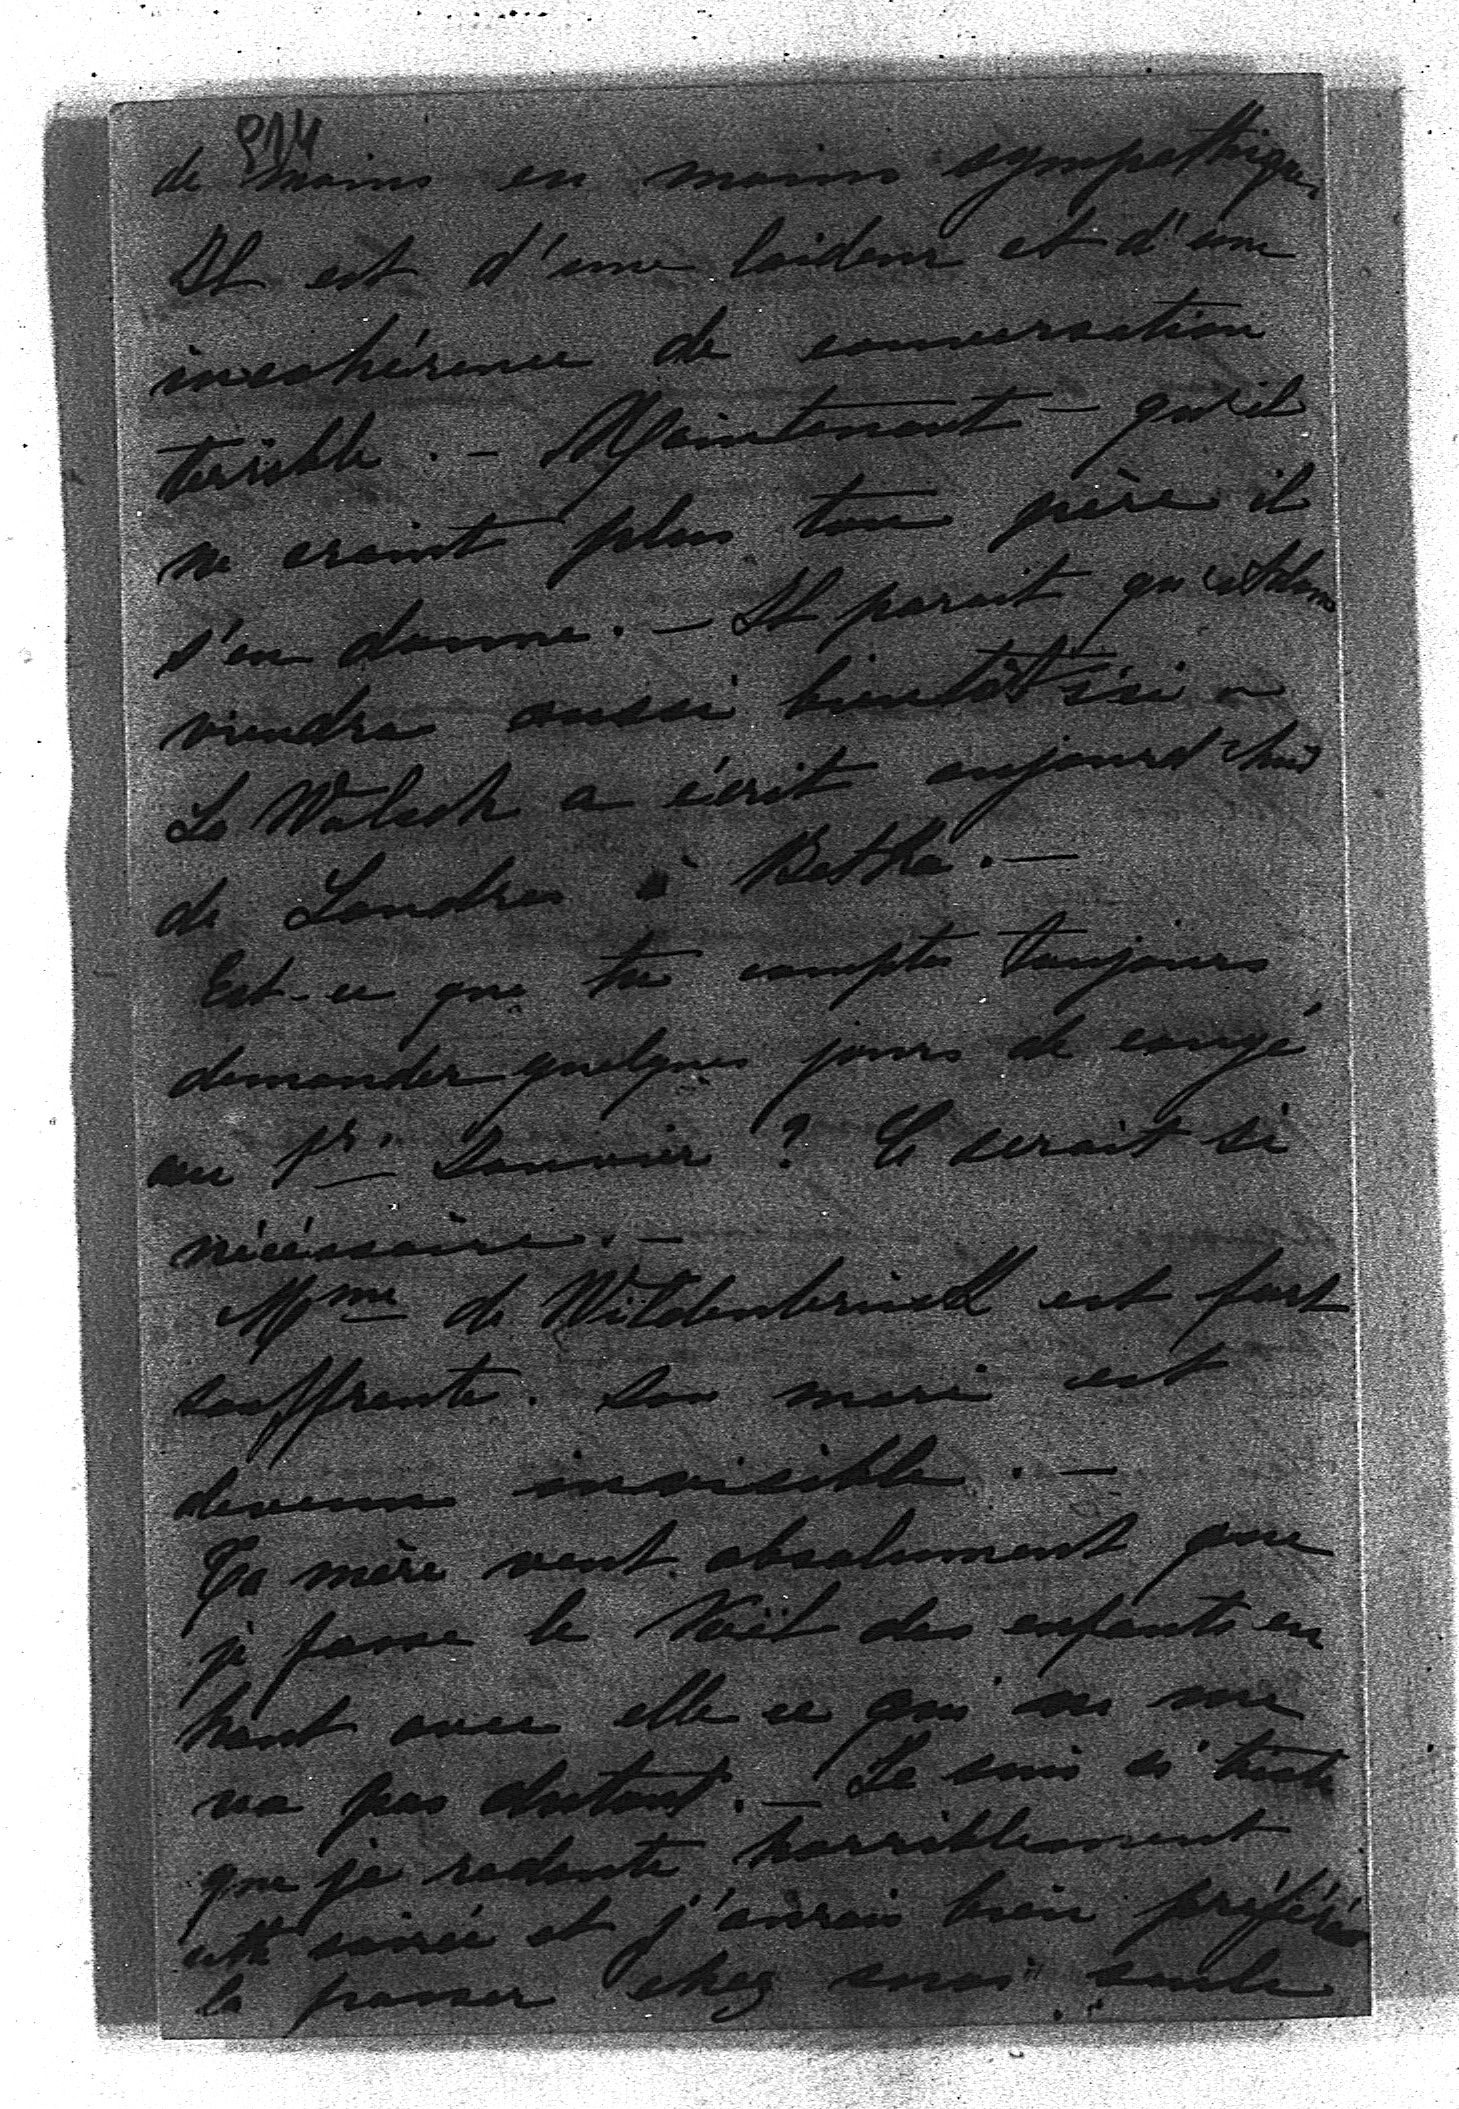 914
de moins en moins sympathique,
Il est d'une laideur et d'une
incohérence de conversation
terrible. — Maintenant — qu'il
ne craint plus ton père il
s'en donne. — Il parait qu'
viendra aussi bientôt ici —
La Walsch a écrit aujourd'hui
de Londres à Betka. —
Est-ce que tu comptes toujours
demander quelques jours de congé
au 1er Janvier ? Ce serait si
nécéssaire. —
Mme de Wildenbruck est fort
souffrante. Son mari est
devenu invisible. —
Ta mère veut absolument que
je passe le Noël des enfants en
haut avec elle ce qui ne me
va pas du tout. — Je suis si triste
que je redoute horriblement
cette soirée et j'aurais bien préféré
la passer chez moi seule